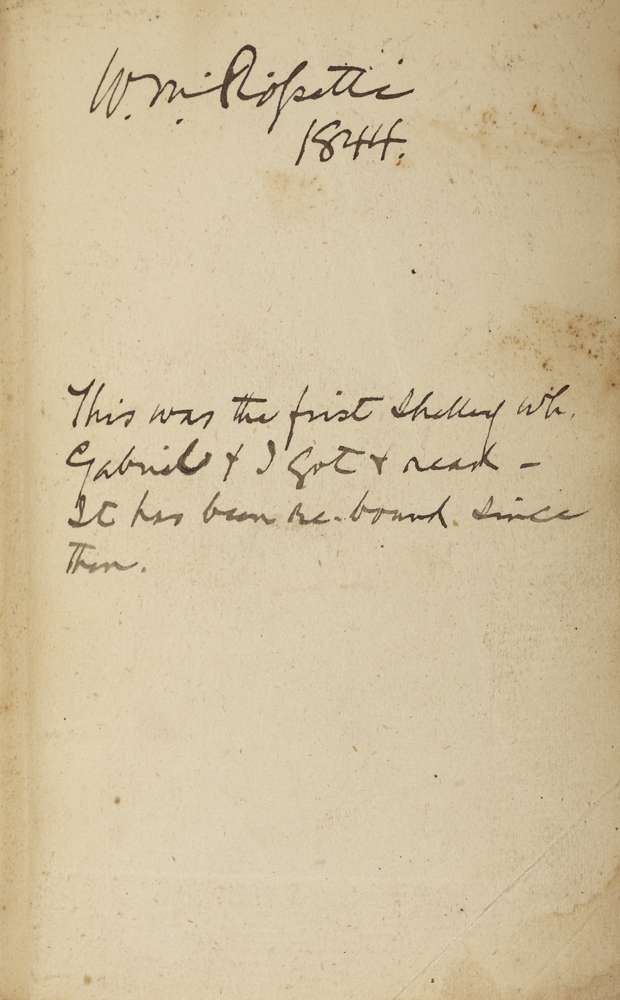 W. M. Rossetti
1844.
This was the first Shelley wh.
Gabriel & I got & read –
It has been re-bound since
then.